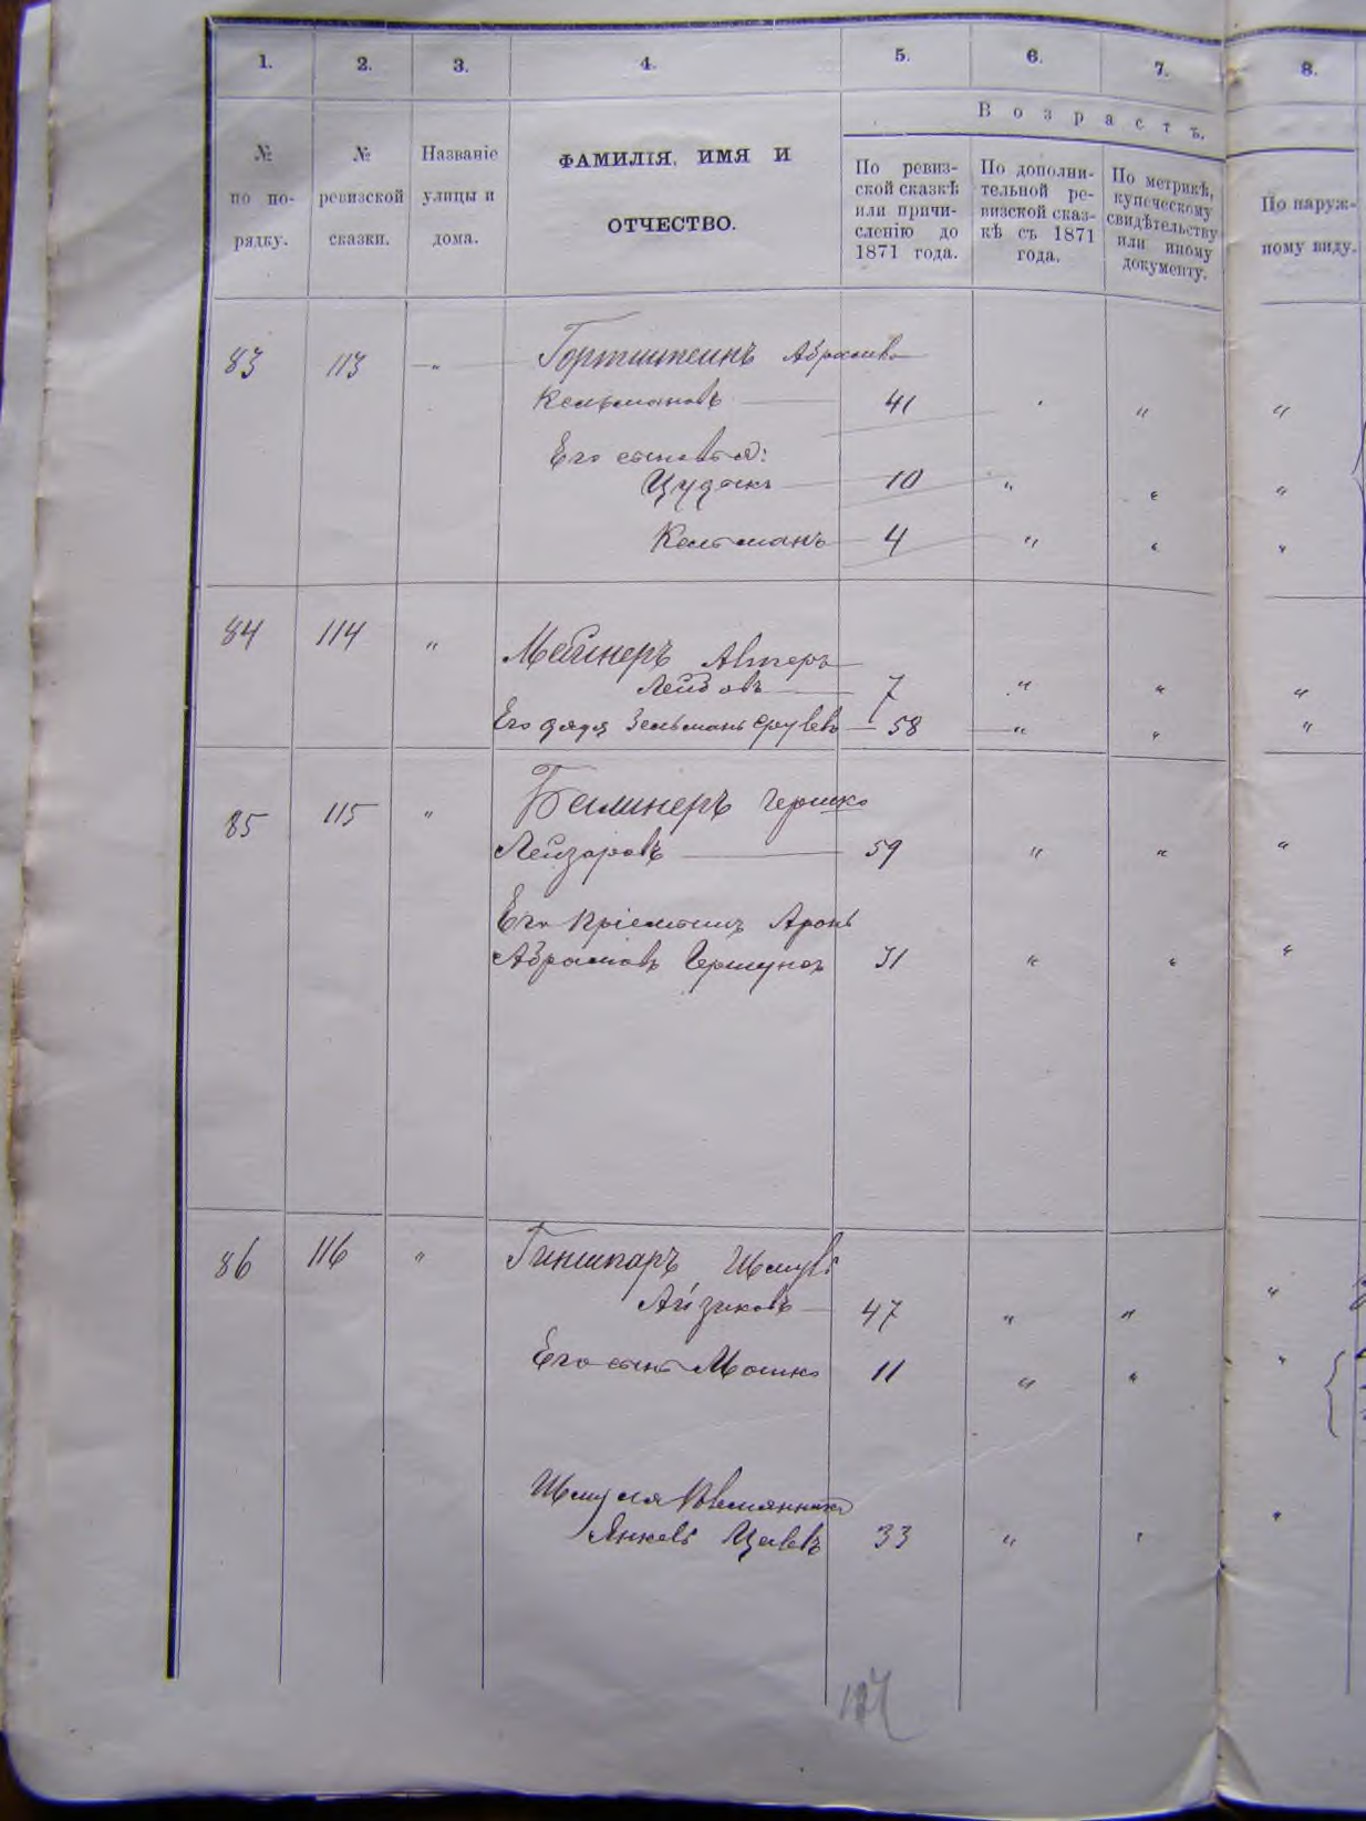 1. 2. 3. 4. 5. 6. 7. 8.
Возрастъ.
№ по по-рядку.
№ ревизской сказки.
Названіе улицы и дома.
ФАМИЛІЯ, ИМЯ И
ОТЧЕСТВО.
По ревиз-
ской сказкѣ
или причи-
сленію до
1871 года.
По дополни-
тельной ре-
визской сказ-
кѣ съ 1871
года.
По метрикѣ,
купеческому
свидѣтельству
или иному
документу.
По наруж-
ному виду.
83 113 — " Гортштеинъ Абрамъ
Кельмановъ 41 " " "
Его сыновья:
Цудикъ 10 " " "
Кельманъ 4 " " "
84 114 " Автеръ
Лейбовъ 7 " " "
Его дядя Зельманъ 58 " " "
85 115 " Гершко
Лейзаровъ 59 " " "
Его пріемышъ Аронъ
Абрамовъ Гершунохъ 31 " " "
86 116 " Гиншпаръ Шмуль
Айзиковъ 47 " " "
Его сынъ Мошко 11 " " "
Шмуля племянникъ
Янкель 33 " " "